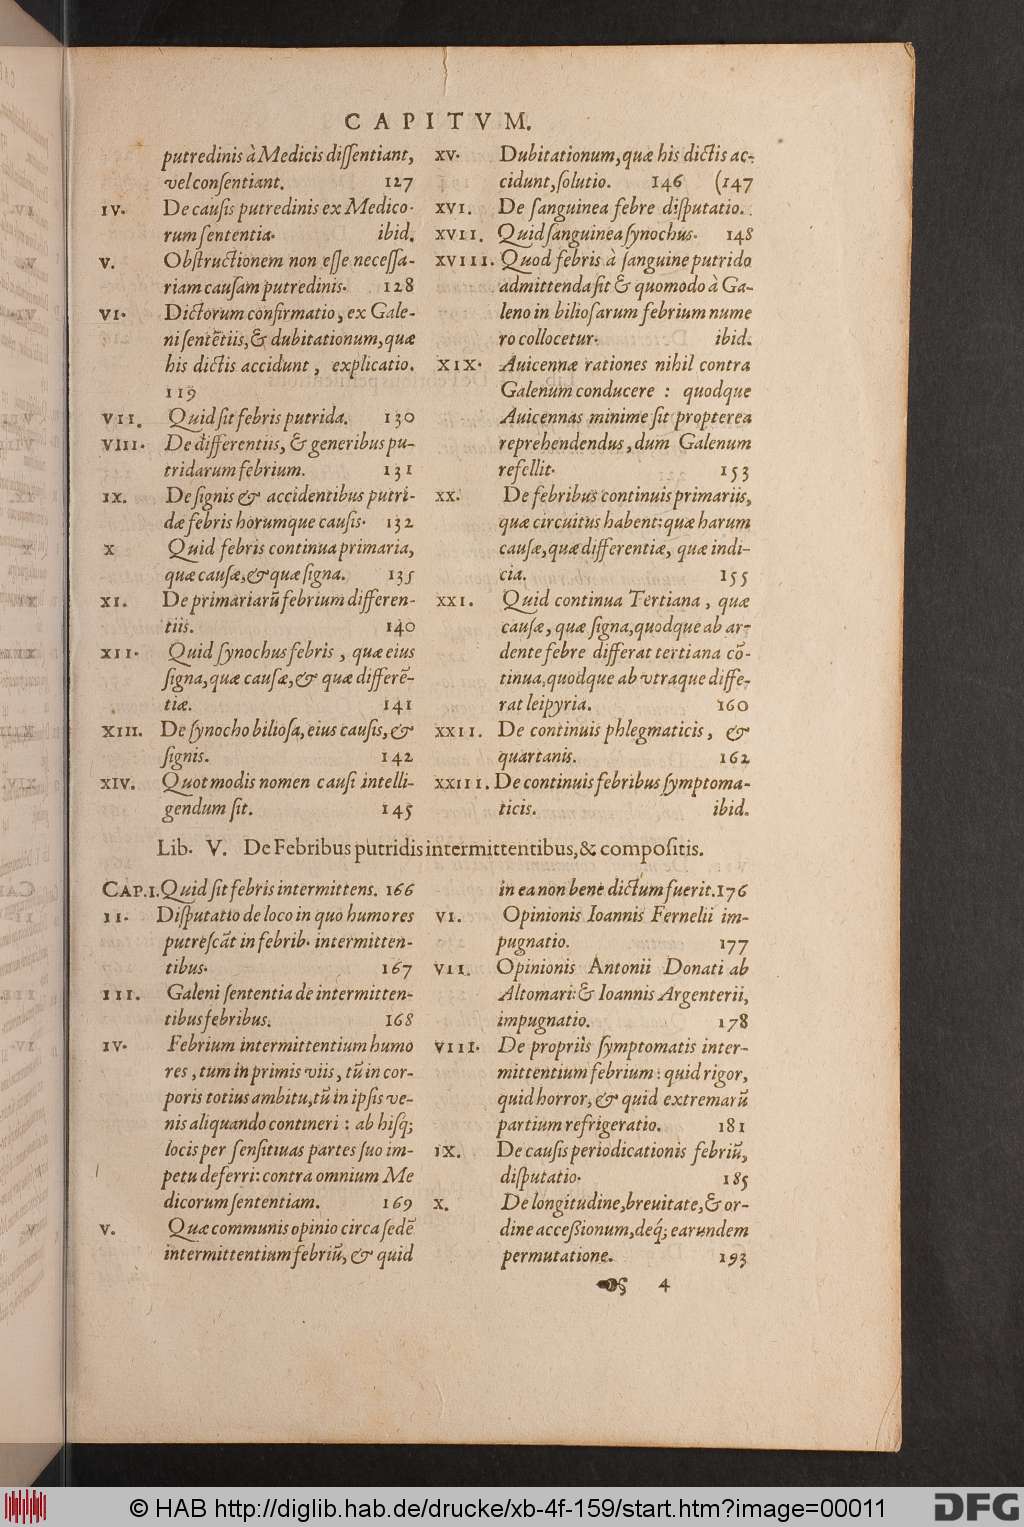 CAPITVM.
putredinis à Medicis dissentiant,
vel consentiant. 127
IV. De causis putredinis ex Medico-
rum sententia. ibid.
V. Obstructionem non esse necessa-
riam causam putredinis. 128
VI. Dictorum confirmatio, ex Gale-
ni sentētiis, & dubitationum, quæ
his dictis accidunt, explicatio.
119
VII. Quid sit febris putrida. 130
VIII. De differentiis, & generibus pu-
tridarum febrium. 131
IX. De signis & accidentibus putri-
dæ febris horumque causis. 132
X Quid febris continua primaria,
quæ causæ, & quæ signa. 135
XI. De primariarū febrium differen-
tiis. 140
XII. Quid synochus febris, quæ eius
signa, quæ causæ, & quæ differē-
tiæ. 141
XIII. De synocho biliosa, eius causis, &
signis. 142
XIV. Quot modis nomen causi intelli-
gendum sit. 145
XV. Dubitationum, quæ his dictis ac-
cidunt, solutio. 146 (147
XVI. De sanguinea febre disputatio.
XVII. Quid sanguinea synochus. 148
XVIII. Quod febris à sanguine putrido
admittenda sit & quomodo à Ga-
leno in biliosarum febrium nume
ro collocetur. ibid.
XIX. Auicennæ rationes nihil contra
Galenum conducere : quodque
Auicennas minime sit propterea
reprehendendus, dum Galenum
refellit. 153
XX. De febribus continuis primariis,
quæ circuitus habent: quæ harum
causæ, quæ differentiæ, quæ indi-
cia. 155
XXI. Quid continua Tertiana, quæ
causæ, quæ signa, quodque ab ar-
dente febre differat tertiana cō-
tinua, quodque ab vtraque diffe-
rat leipyria. 160
XXII. De continuis phlegmaticis, &
quartanis. 162
XXIII. De continuis febribus symptoma-
ticis. ibid.
Lib. V. De Febribus putridis intermittentibus, & compositis.
CAP.I. Quid sit febris intermittens. 166
II. Disputatio de loco in quo humores
putrescāt in febrib. intermitten-
tibus. 167
III. Galeni sententia de intermitten-
tibus febribus. 168
IV. Febrium intermittentium humo
res, tum in primis viis, tū in cor-
poris totius ambitu, tū in ipsis ve-
nis aliquando contineri : ab hisq;
locis per sensitiuas partes suo im-
petu deferri: contra omnium Me
dicorum sententiam. 169
V. Quæ communis opinio circa sedē
intermittentium febriū, & quid
in ea non bene dictum fuerit. 176
VI. Opinionis Ioannis Fernelii im-
pugnatio. 177
VII. Opinionis Antonii Donati ab
Altomari: & Ioannis Argenterii,
impugnatio. 178
VIII. De propriis symptomatis inter-
mittentium febrium : quid rigor,
quid horror, & quid extremarū
partium refrigeratio. 181
IX. De causis periodicationis febriū,
disputatio. 185
X. De longitudine, breuitate, & or-
dine accessionum, deq; earundem
permutatione. 193
4
© HAB http://diglib.hab.de/drucke/xb-4f-159/start.htm?image=00011
DFG